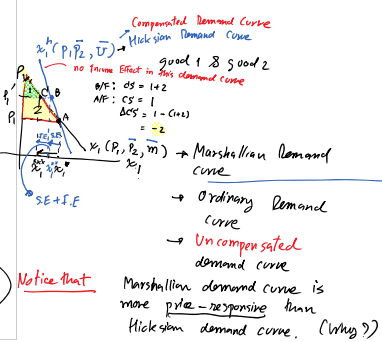 Compensated Demand Curve
x₁ʰ (P₁, P̄₂, Ū) → Hicksian Demand Curve
good 1 & good 2
no Income Effect in this demand curve
B/F : CS = 1+2
A/F : CS = 1
ΔCS = 1 - (1+2)
= -2
P₁
P₁'
P₁
1
2
C
B
A
x₁ (P₁, P̄₂, m̄) → Marshallian Demand
curve
x₁
S.E + I.E
→ Ordinary Demand
curve
→ Uncompensated
demand curve
Notice that
Marshallian demand curve is
more price-responsive than
Hicksian demand curve. (Why?)